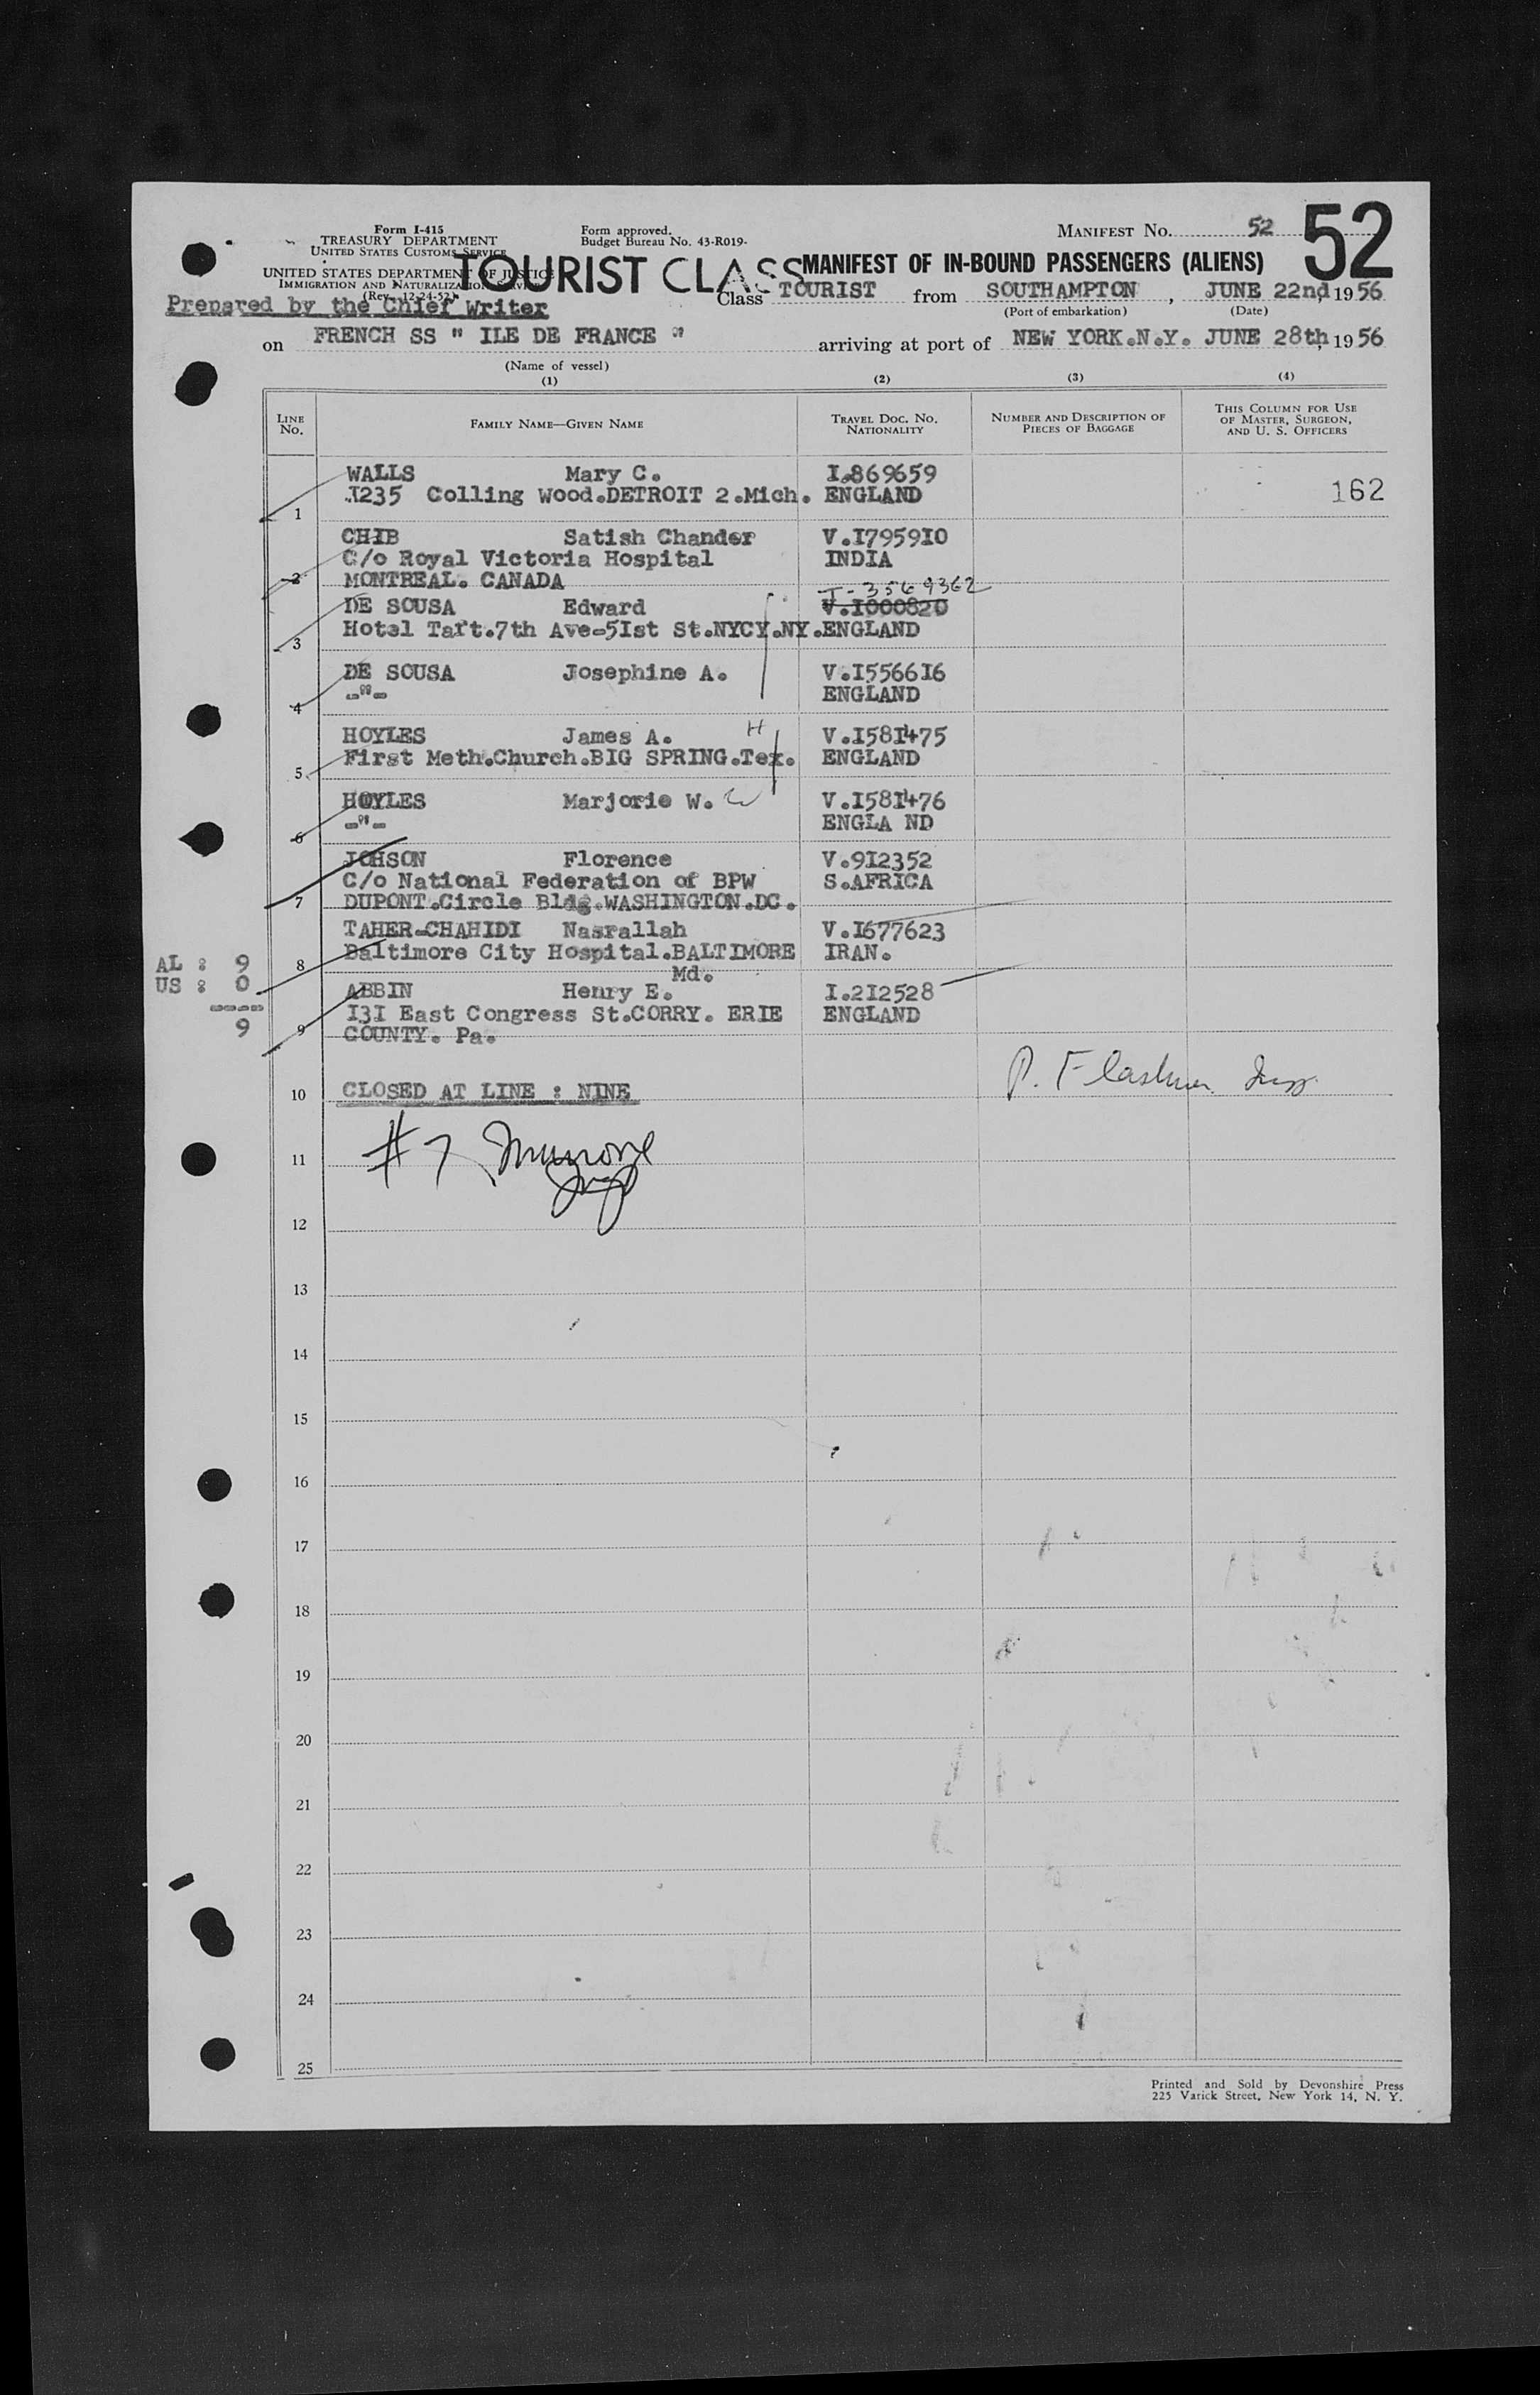 Form I-415
TREASURY DEPARTMENT
UNITED STATES CUSTOMS SERVICE
UNITED STATES DEPARTMENT OF JUSTICE
IMMIGRATION AND NATURALIZATION SERVICE
(Rev. 12-24-52)
Form approved.
Budget Bureau No. 43-R019-
MANIFEST NO. 52
52
TOURIST CLASS
MANIFEST OF IN-BOUND PASSENGERS (ALIENS)
Prepared by the Chief Writer
Class TOURIST from SOUTHAMPTON, JUNE 22nd, 1956
(Port of embarkation) (Date)
on FRENCH SS " ILE DE FRANCE " arriving at port of NEW YORK.N.Y. JUNE 28th, 1956
(Name of vessel)
(1) (2) (3) (4)
LINE NO. FAMILY NAME—GIVEN NAME TRAVEL DOC. NO. NATIONALITY NUMBER AND DESCRIPTION OF PIECES OF BAGGAGE THIS COLUMN FOR USE OF MASTER, SURGEON, AND U. S. OFFICERS
WALLS Mary C. I.869659
I235 Colling Wood.DETROIT 2.Mich. ENGLAND 162
1
CHIB Satish Chander V.I7959I0
C/o Royal Victoria Hospital INDIA
2 MONTREAL. CANADA
T-3569362
DE SOUSA Edward V.I000820
3 Hotel Taft.7th Ave-5Ist St.NYCY.NY.ENGLAND
DE SOUSA Josephine A. V.I5566I6
4 -"- ENGLAND
HOYLES James A. H V.I58I475
5 First Meth.Church.BIG SPRING.Tex. ENGLAND
HOYLES Marjorie W. W V.I58I476
6 -"- ENGLA ND
JOHSON Florence V.9I2352
C/o National Federation of BPW S.AFRICA
7 DUPONT.Circle Bldg.WASHINGTON.DC.
TAHER-CHAHIDI Nasrallah V.I677623
8 Baltimore City Hospital.BALTIMORE IRAN.
Md.
AL : 9
US : 0
----
9
ABBIN Henry E. I.2I2528
I3I East Congress St.CORRY. ERIE ENGLAND
9 COUNTY. Pa.
P. Flashner Insp.
10 CLOSED AT LINE : NINE
11 #7
Insp
12
13
14
15
16
17
18
19
20
21
22
23
24
25
Printed and Sold by Devonshire Press
225 Varick Street, New York 14, N. Y.